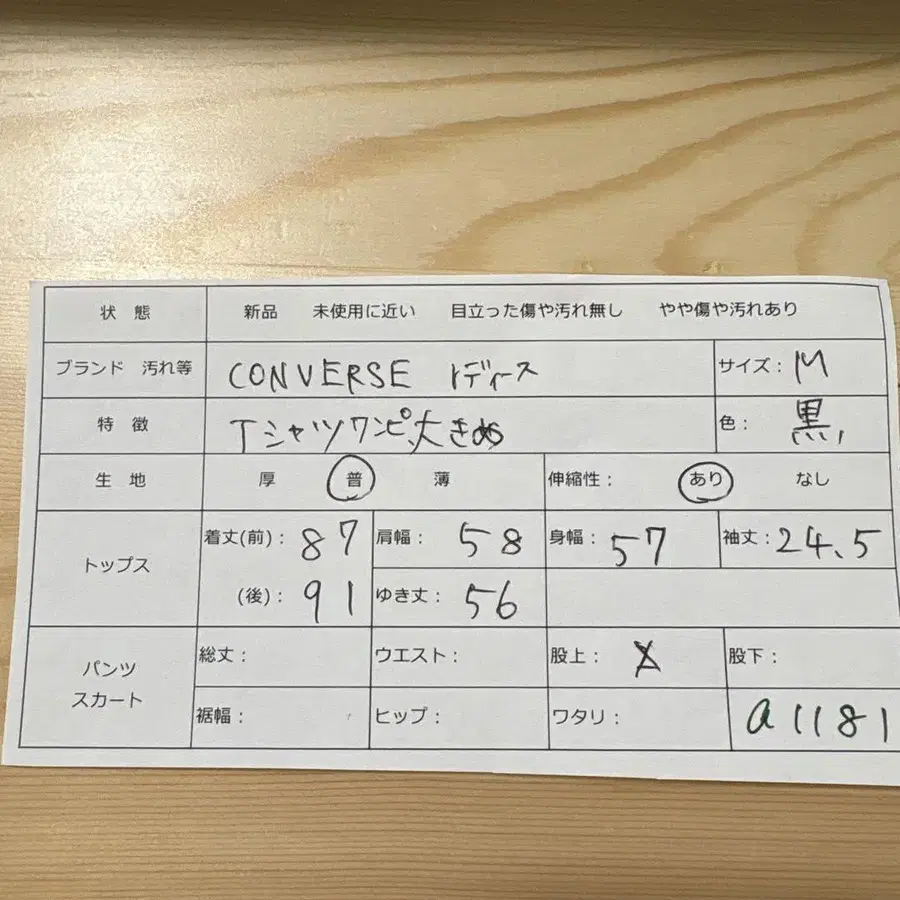 状態 新品 未使用に近い 目立った傷や汚れ無し やや傷や汚れあり
ブランド 汚れ等 CONVERSE レディース サイズ: M
特徴 Tシャツワンピ、大きめ 色: 黒
生地 厚 普 薄 伸縮性: あり なし
トップス 着丈(前): 87 肩幅: 58 身幅: 57 袖丈: 24.5
(後): 91 ゆき丈: 56
パンツ スカート 総丈: ウエスト: 股上: 股下:
裾幅: ヒップ: ワタリ: a1181